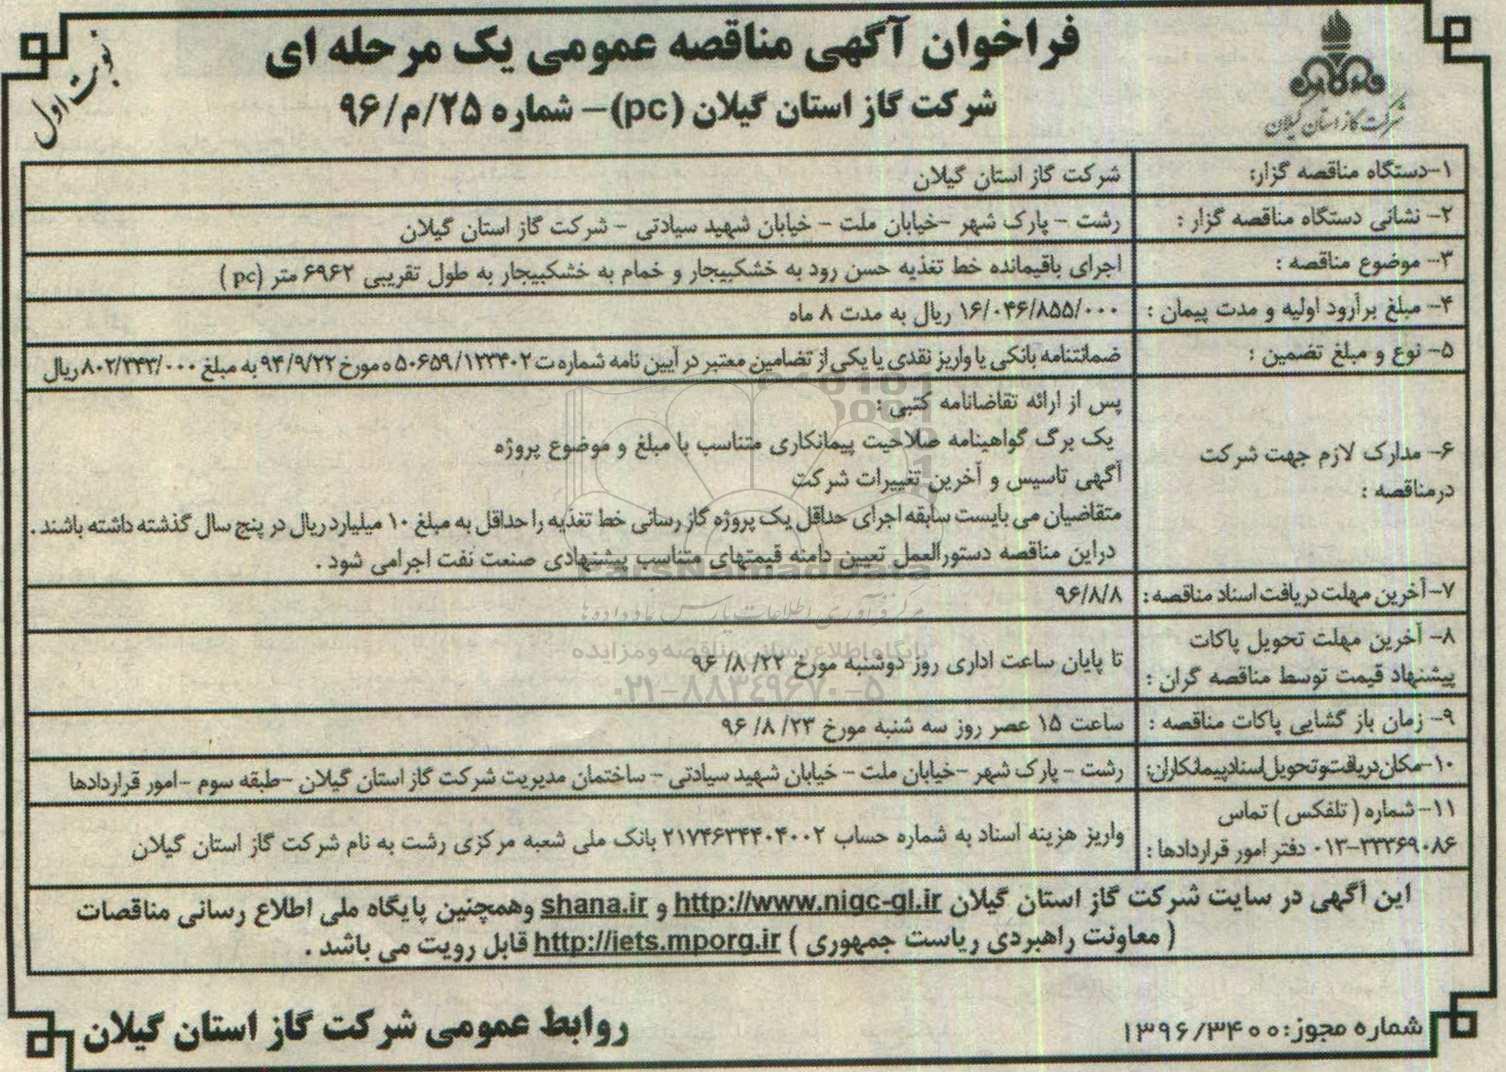 فراخوان آگهی مناقصه عمومی یک مرحله ای
نوبت اول
شرکت گاز استان گیلان (pc) – شماره ۲۵/م/۹۶
شرکت گاز استان گیلان
۱-دستگاه مناقصه گزار: شرکت گاز استان گیلان
۲- نشانی دستگاه مناقصه گزار : رشت - پارک شهر -خیابان ملت - خیابان شهید سیادتی - شرکت گاز استان گیلان
۳- موضوع مناقصه : اجرای باقیمانده خط تغذیه حسن رود به خشکبیجار و خمام به خشکبیجار به طول تقریبی ۶۹۶۲ متر (pc )
۴- مبلغ برآرود اولیه و مدت پیمان : ۱۶/۰۴۶/۸۵۵/۰۰۰ ریال به مدت ۸ ماه
۵- نوع و مبلغ تضمین : ضمانتنامه بانکی یا واریز نقدی یا یکی از تضامین معتبر در آیین نامه شماره ت ۱۲۳۴۰۲/ ۵۰۶۵۹ ه مورخ ۹۴/۹/۲۲ به مبلغ ۸۰۲/۳۴۳/۰۰۰ ریال
۶- مدارک لازم جهت شرکت
درمناقصه :
پس از ارائه تقاضانامه کتبی :
یک برگ گواهینامه صلاحیت پیمانکاری متناسب با مبلغ و موضوع پروژه
آگهی تاسیس و آخرین تغییرات شرکت
متقاضیان می بایست سابقه اجرای حداقل یک پروژه گاز رسانی خط تغذیه را حداقل به مبلغ ۱۰ میلیارد ریال در پنج سال گذشته داشته باشند .
دراین مناقصه دستورالعمل تعیین دامنه قیمتهای متناسب پیشنهادی صنعت نفت اجرامی شود .
۷-آخرین مهلت دریافت اسناد مناقصه: ۹۶/۸/۸
۸- آخرین مهلت تحویل پاکات
پیشنهاد قیمت توسط مناقصه گران :
تا پایان ساعت اداری روز دوشنبه مورخ ۲۲/ ۸/ ۹۶
۹- زمان باز گشایی پاکات مناقصه : ساعت ۱۵ عصر روز سه شنبه مورخ ۲۳/ ۸/ ۹۶
۱۰-مکان دریافت و تحویل اسناد پیمانکاران: رشت - پارک شهر -خیابان ملت - خیابان شهید سیادتی - ساختمان مدیریت شرکت گاز استان گیلان -طبقه سوم -امور قراردادها
۱۱- شماره ( تلفکس ) تماس
۰۱۳-۳۳۳۶۹۰۸۶ دفتر امور قراردادها :
واریز هزینه اسناد به شماره حساب ۲۱۷۴۶۳۴۴۰۴۰۰۲ بانک ملی شعبه مرکزی رشت به نام شرکت گاز استان گیلان
این آگهی در سایت شرکت گاز استان گیلان http://www.nigc-gl.ir و shana.ir وهمچنین پایگاه ملی اطلاع رسانی مناقصات
( معاونت راهبردی ریاست جمهوری ) http://iets.mporg.ir قابل رویت می باشد .
شماره مجوز: ۱۳۹۶/۳۴۰۰
روابط عمومی شرکت گاز استان گیلان
ParsNamadData
مرکز فرآوری اطلاعات پارس نماد داده ها
پایگاه اطلاع رسانی مناقصه و مزایده
۰۲۱-۸۸۳۴۹۶۷۰-۵